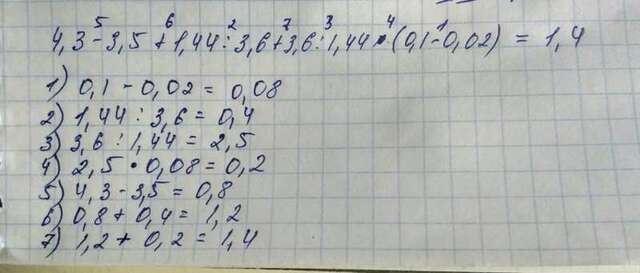 5 6 2 7 3 4 1
4,3-3,5+1,44:3,6+3,6:1,44•(0,1-0,02) = 1,4
1) 0,1 - 0,02 = 0,08
2) 1,44 : 3,6 = 0,4
3) 3,6 : 1,44 = 2,5
4) 2,5 • 0,08 = 0,2
5) 4,3 - 3,5 = 0,8
6) 0,8 + 0,4 = 1,2
7) 1,2 + 0,2 = 1,4